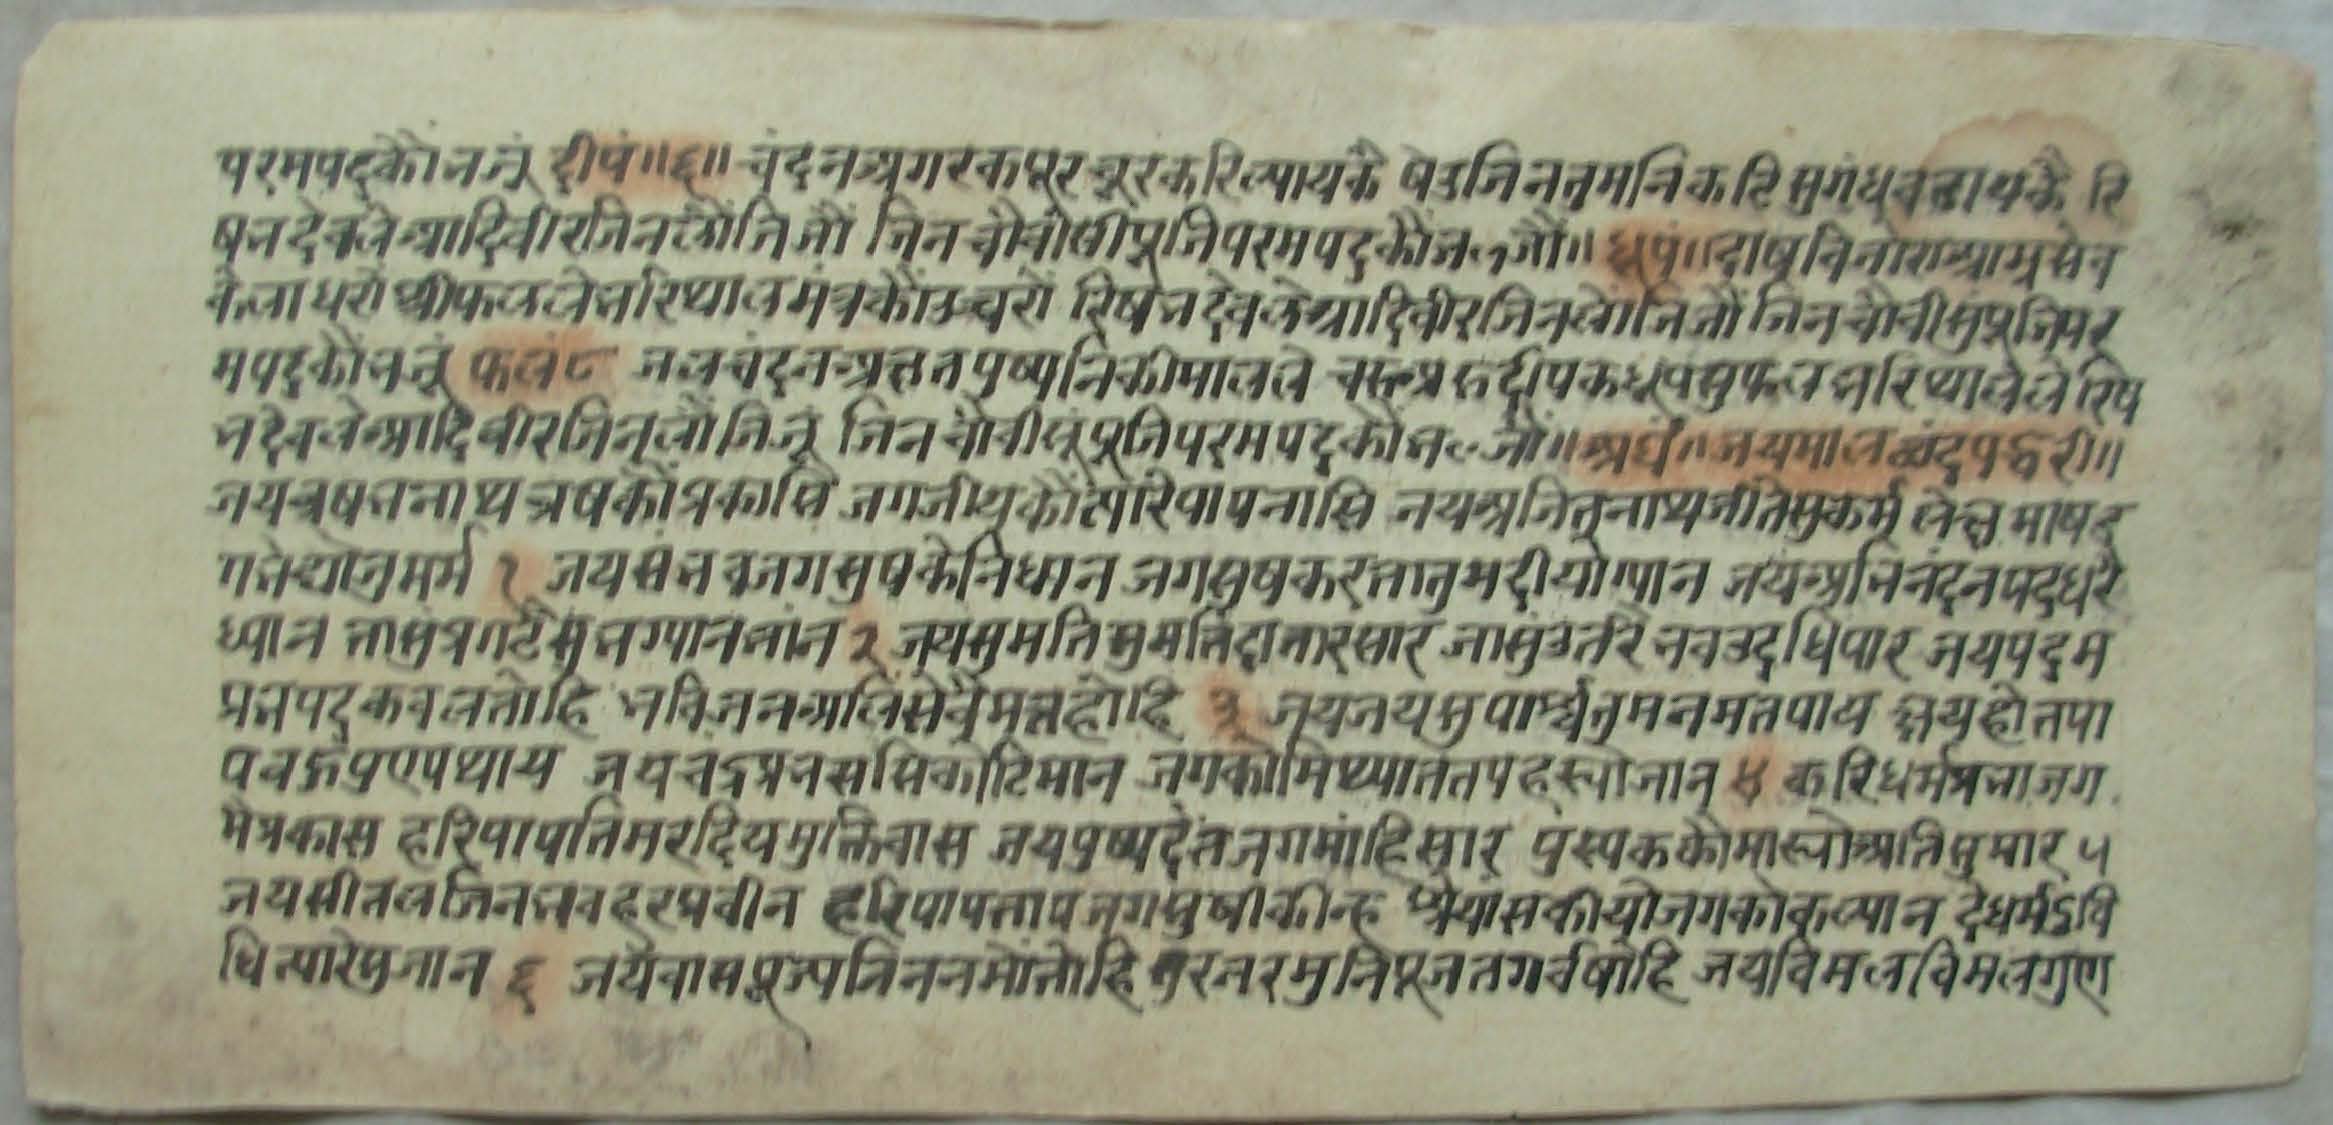 परमपदकौं भजूं दीपं॥६॥ चंदन अगर कपूर चूर करि ल्यायकै षेउ जिन तुम निकटि सुगंध बढायकै रि
षभदेव ले आदि वीर जिन लौं जिजौं जिन चौवीसौं पूजि परमपदकौं भ॰जौं॥ धूपं॥ दाष बिजोरा आम्र सेव
केला धरौं श्रीफल ले भरि थाल मंत्रकौं उच्चरौं रिषभदेव ले आदि वीर जिन लौं जिजौं जिन चौवीसुं पूजि पर
मपदकौं भजूं फलं ८ जल चंदन अक्षत पुष्पनिकी माल ले चरू अरु दीपक धूप सुफल भरि थाल ले रिष
भदेव ले आदि वीर जिन लौं जिजूं जिन चौवीसूं पूजि परमपदकौं भ॰जौं॥ अर्घं॥ जयमाल छंद पद्धरी॥
जय व्रषभनाथ व्रषकौं प्रकासि जगजीवकौं त्यारे पाप नासि जय अजितनाथ जीते सुकर्म ले क्षमाषद
गते थौजु मर्म १ जय संभव जग सुषके निधान जग सुष करता तुम दीयो ग्यान जय अभिनंदन पद धरै
ध्यान तासुं प्रगटै सुभ ग्यान भांन २ जय सुमति सुमति दातार सार जासुं उतरे भव उदधि पार जय पदम
प्रभ पद कवल तोहि भविजन अलि सेवै मत्त होहि ३ जय जय सुपार्श्व तुम नमत पाय क्षय होत पा
प बहु पुण्य थाय जय चंद्रप्रभ ससि कोटि भान जगको मिथ्यातप हस्यो जान ४ करि धर्म प्रभा जग
मै प्रकास हरि पाप तिमर दिय मुक्तिवास जय पुष्पदंत जग मांहि सार पुंस्पकको मास्यो अति सुमार ५
जय सीतल जिन भव हर प्रवीन हरि पाप ताप जग सुषी कीन्ह श्रेयांस कीयो जगको कल्यान दे धर्म दुवि
धि त्यारे सुजान ६ जय वासपूज्य जिन नमों तोहि सुर नर मुनि पूजत गर्व षोहि जय विमल विमल गुण